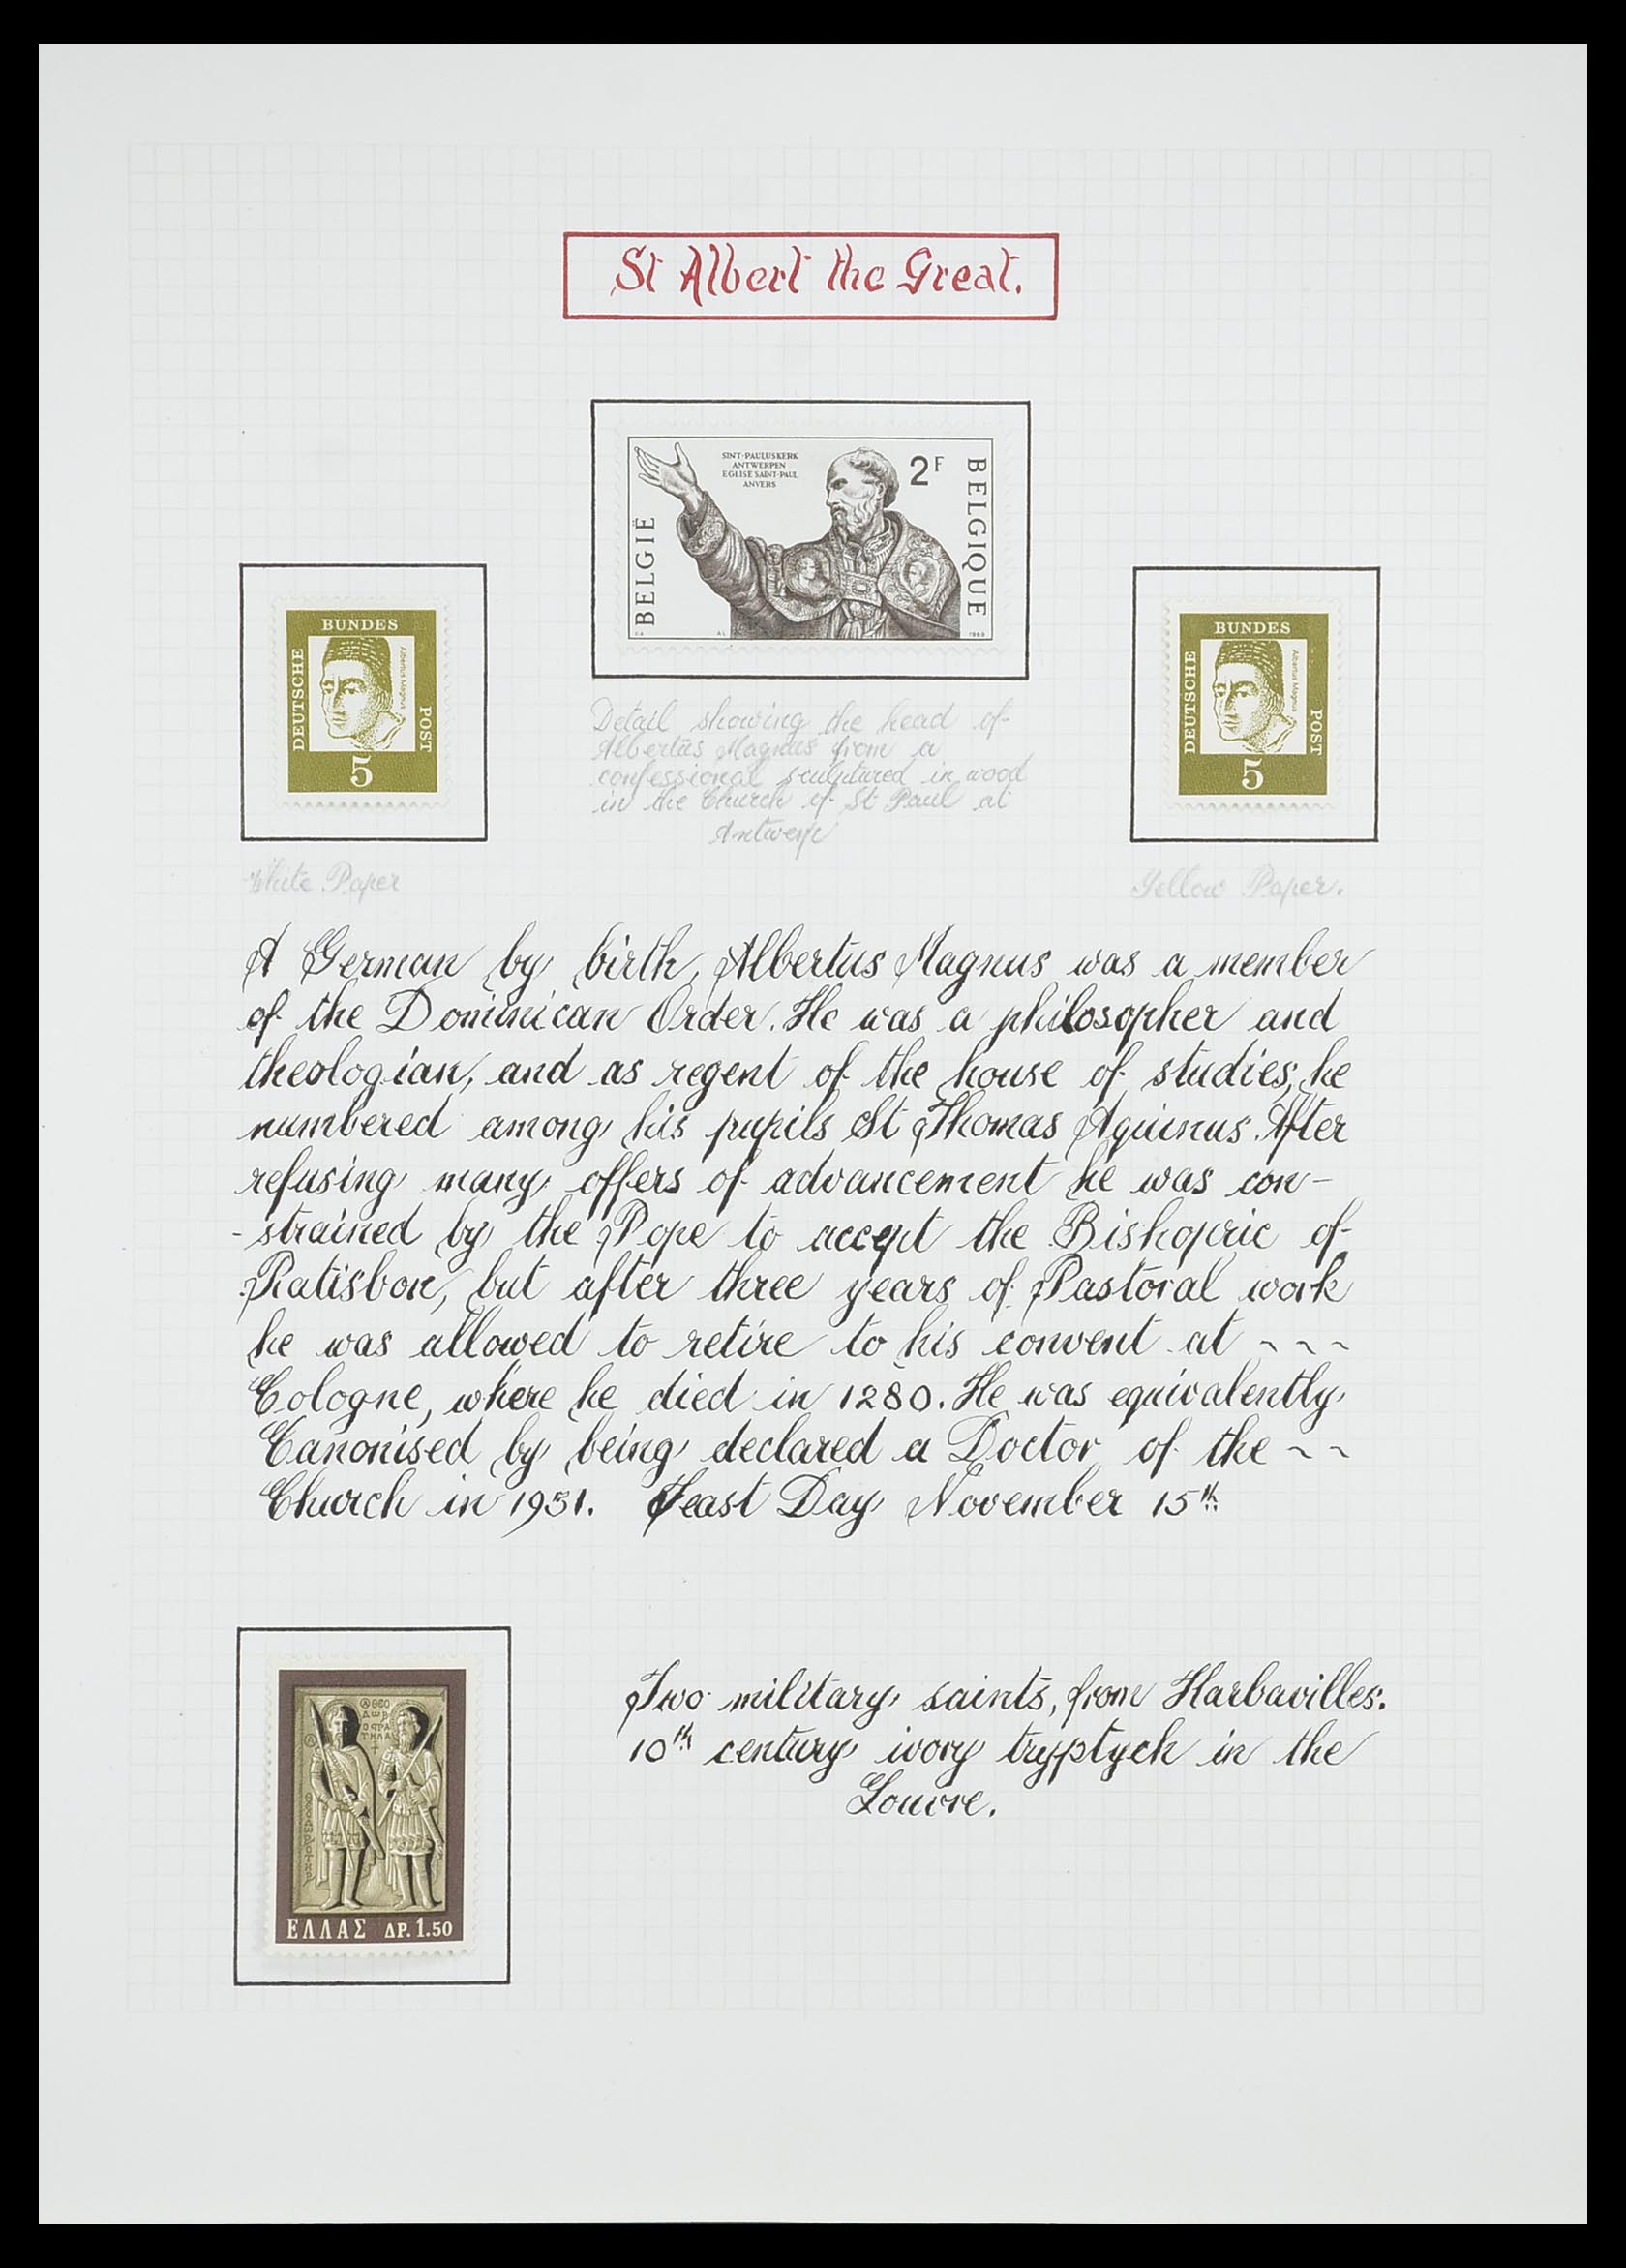 St Albert the Great.
SINT-PAULUSKERK
ANTWERPEN
EGLISE SAINT-PAUL
ANVERS
2F
BELGIË
BELGIQUE
1969
Detail showing the head of
Albertus Magnus from a
confessional sculptured in wood
in the Church of St Paul at
Antwerp
DEUTSCHE
BUNDES
POST
Albertus Magnus
5
White Paper
DEUTSCHE
BUNDES
POST
Albertus Magnus
5
Yellow Paper.
A German by birth, Albertus Magnus was a member
of the Dominican Order. He was a philosopher and
theologian, and as regent of the house of studies, he
numbered among his pupils St Thomas Aquinus. After
refusing many offers of advancement he was con-
-strained by the Pope to accept the Bishopric of
Ratisbon, but after three years of Pastoral work
he was allowed to retire to his convent at ~ ~ ~
Cologne, where he died in 1280. He was equivalently
Canonised by being declared a Doctor of the ~ ~
Church in 1931. Feast Day November 15th
ΕΛΛΑΣ ΔΡ. 1.50
Two military saints, from Harbavilles.
10th century ivory tryptych in the
Louvre.